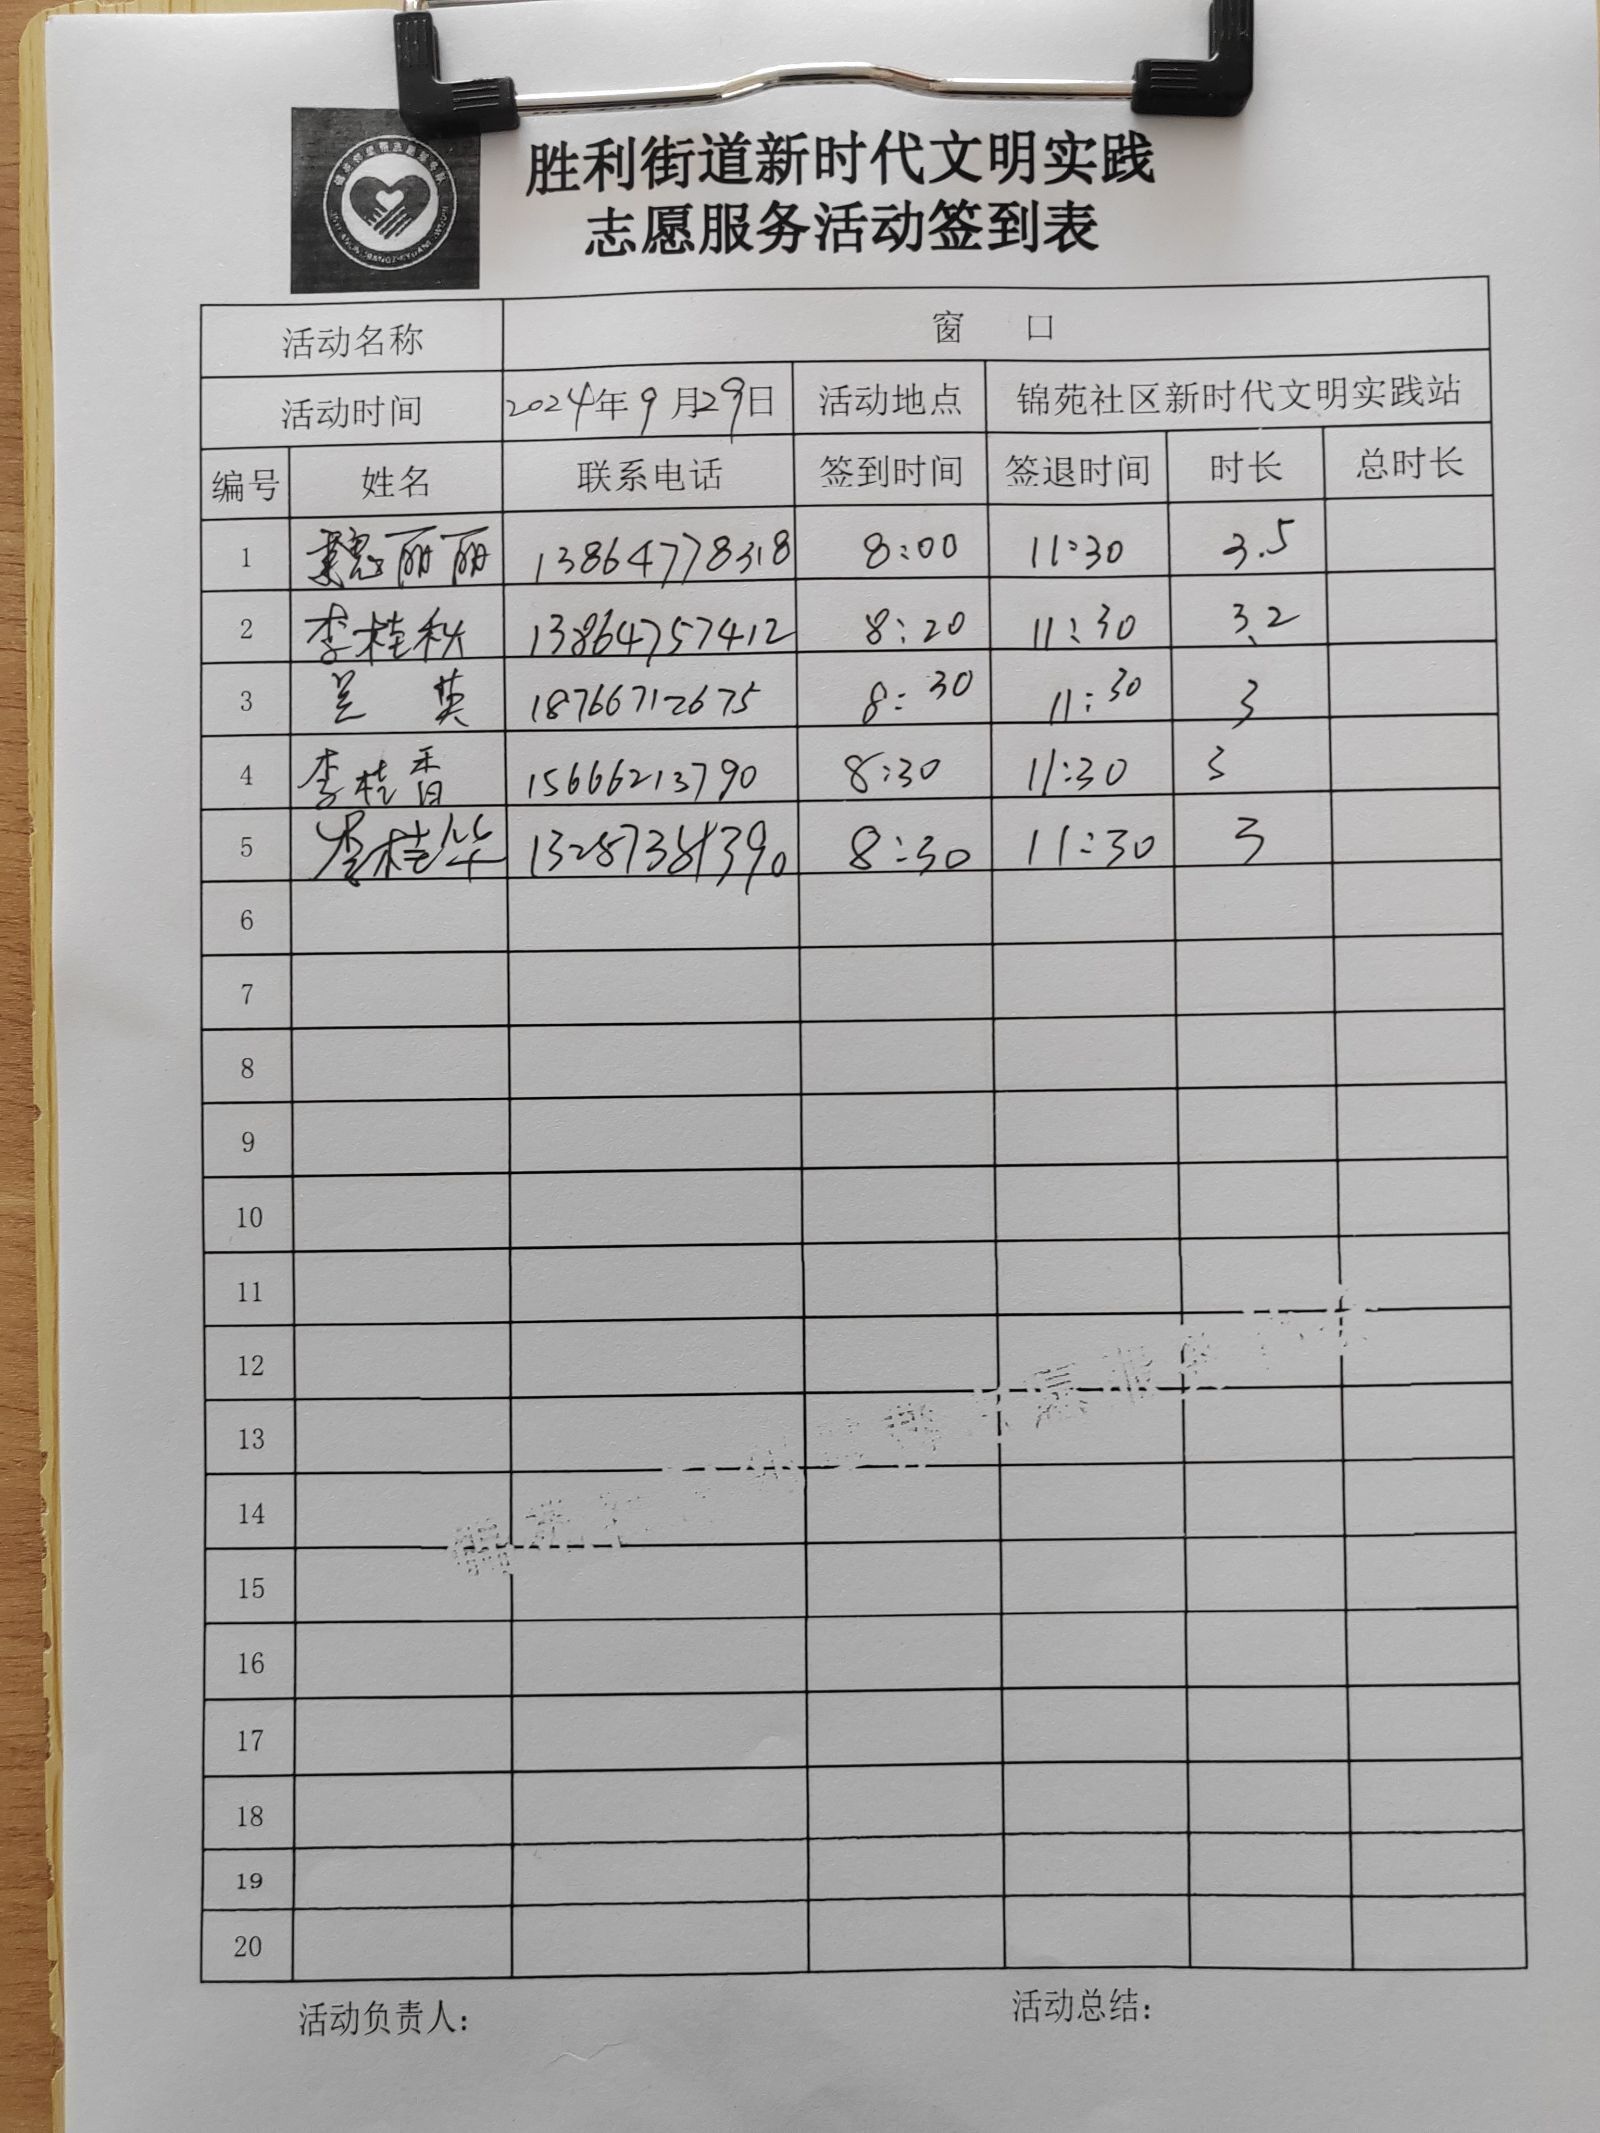 胜利街道新时代文明实践
志愿服务活动签到表
活动名称 窗 口
活动时间 2024年9月29日 活动地点 锦苑社区新时代文明实践站
编号 姓名 联系电话 签到时间 签退时间 时长 总时长
1 魏丽丽 13864778318 8:00 11:30 3.5
2 李桂秋 13864757412 8:20 11:30 3.2
3 兰 英 18766712675 8:30 11:30 3
4 李桂香 15666213790 8:30 11:30 3
5 桂华 8:30 11:30 3
6
7
8
9
10
11
12
13
14
15
16
17
18
19
20
活动负责人: 活动总结: